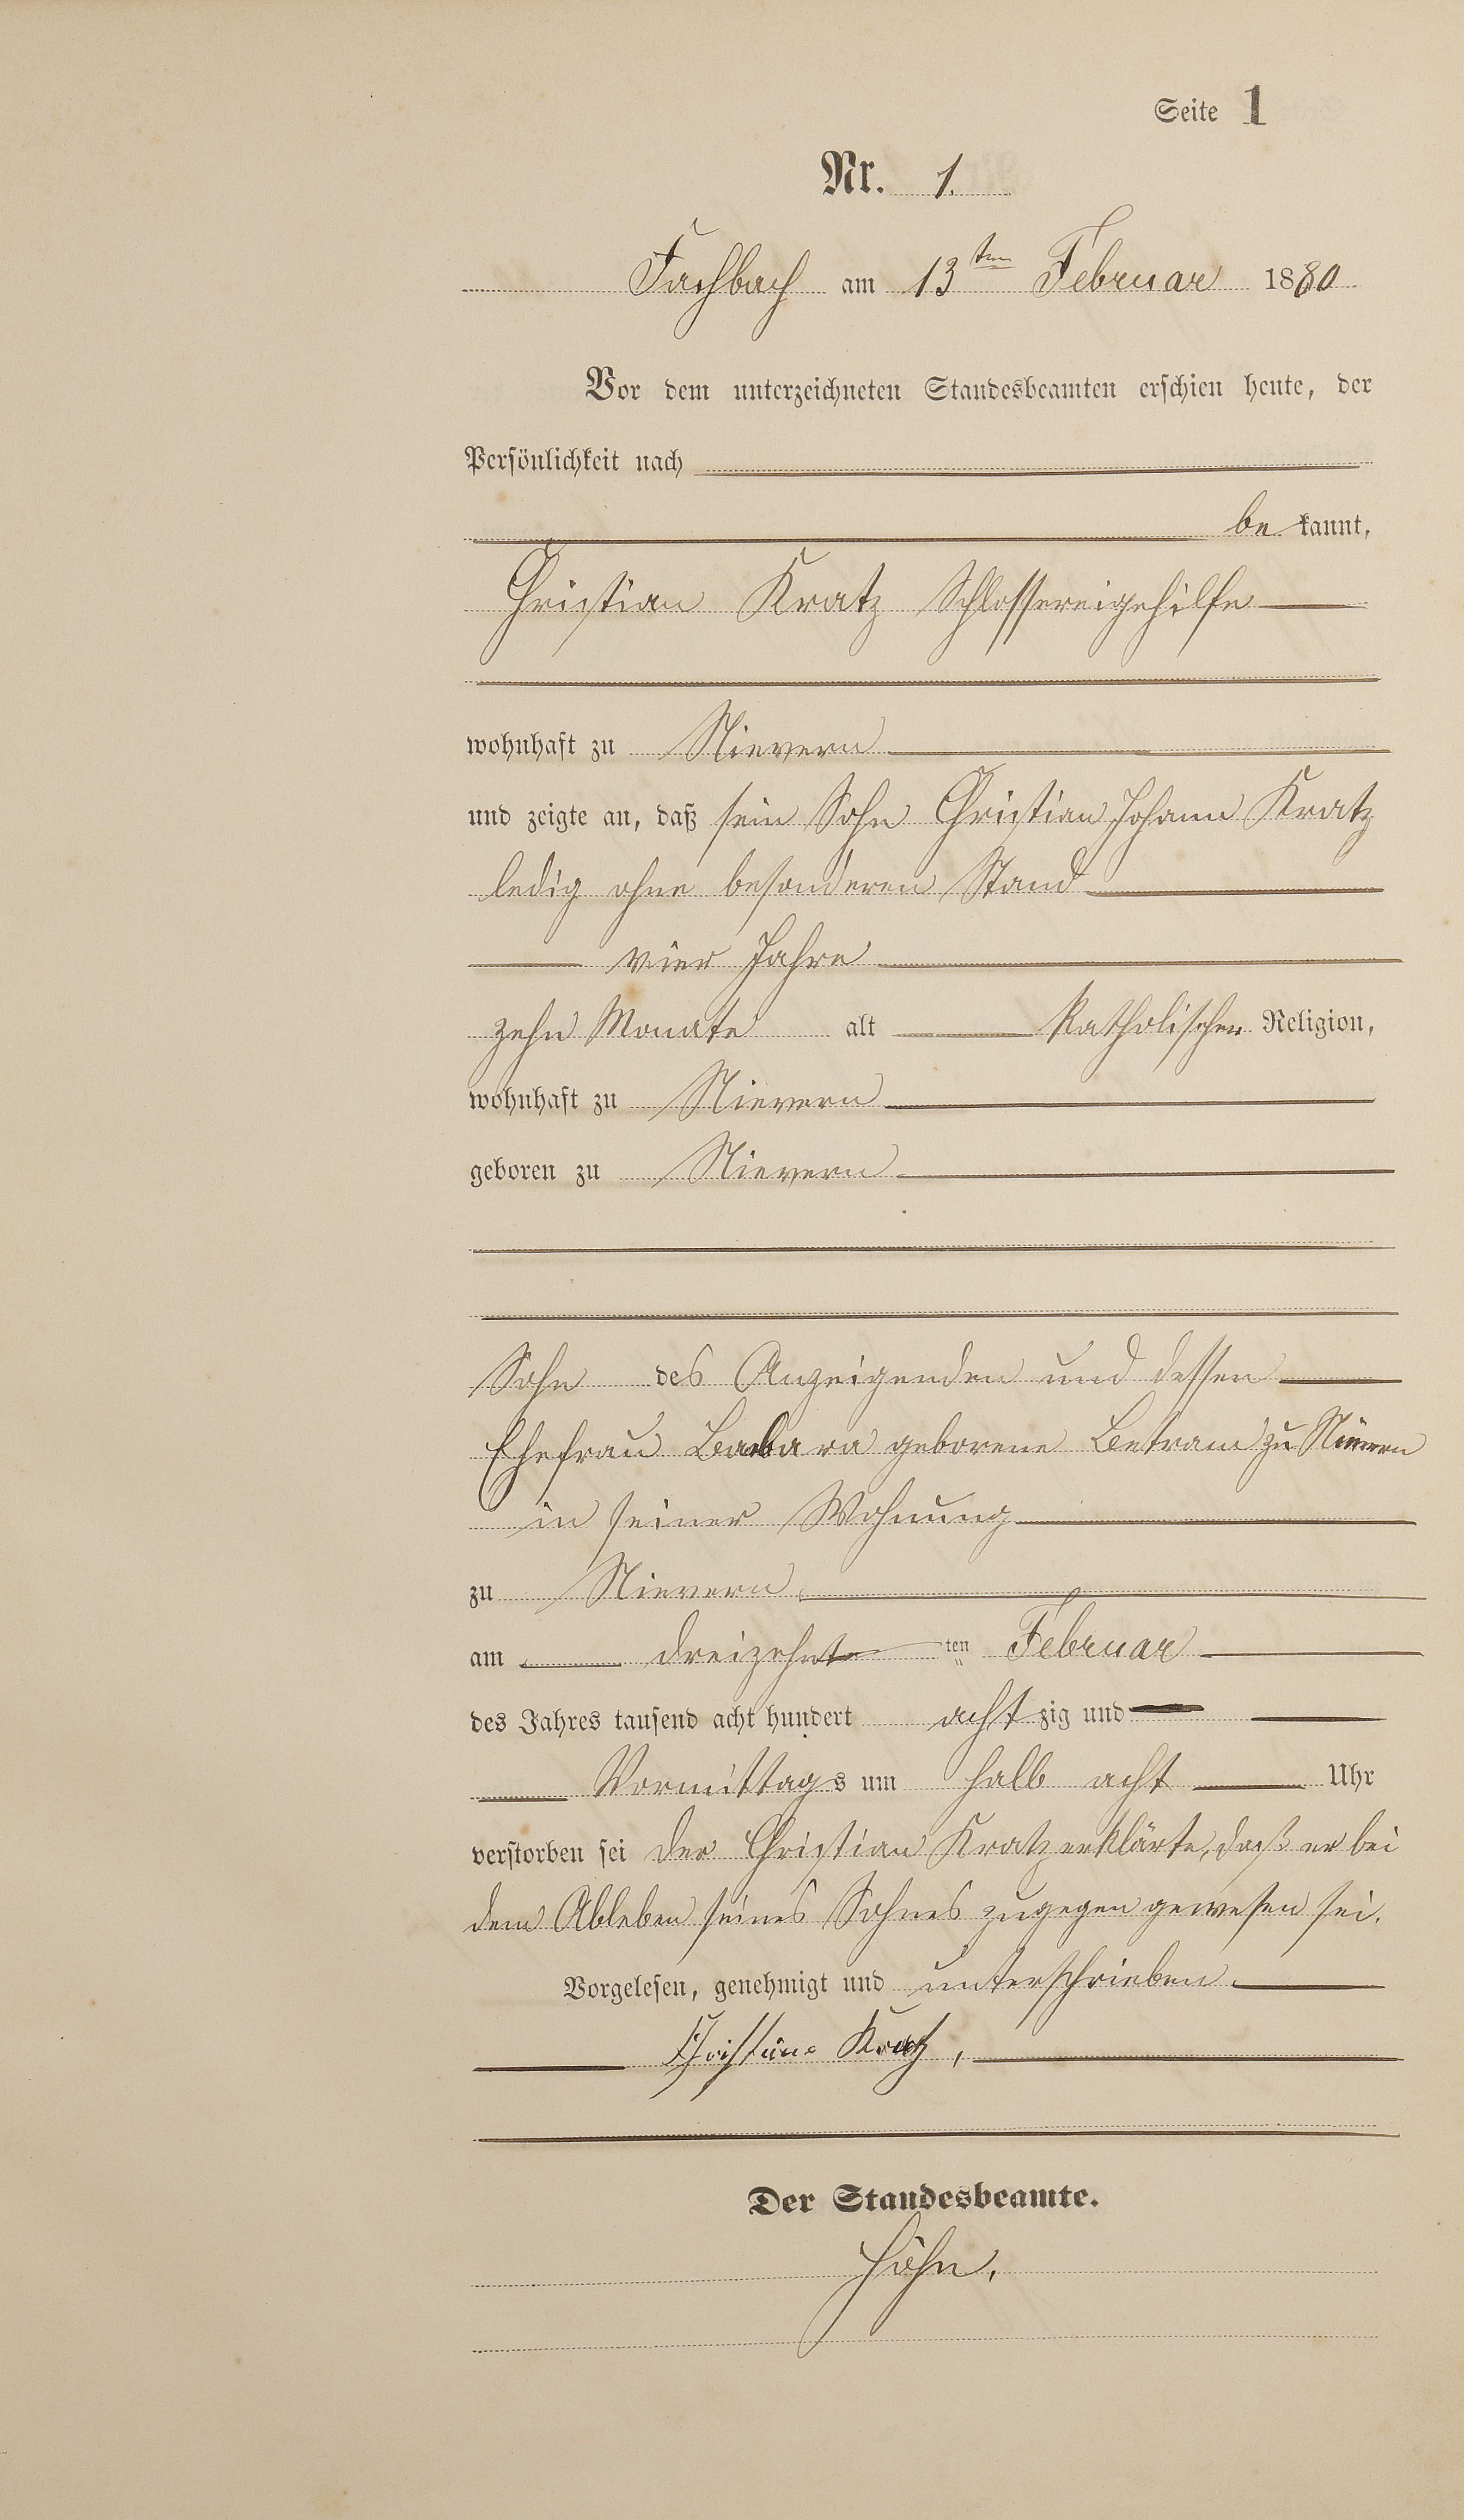 Seite 1
Nr. 1.
Fachbach am 13ten Februar 1880
Vor dem unterzeichneten Standesbeamten erschien heute, der
Persönlichkeit nach
be kannt,
Christian Kratz Schlossereigehilfe
wohnhaft zu Nievern
und zeigte an, daß sein Sohn Christian Johann Kratz
ledig ohne besonderen Stand
vier Jahre
zehn Monate alt katholischer Religion,
wohnhaft zu Nievern
geboren zu Nievern
Sohn des Anzeigenden und dessen
Ehefrau Barbara geborene Betram zu Nievern
in seiner Wohnung
zu Nievern
am dreizehnten Februar
des Jahres tausend acht hundert achtzig und
Vormittags um halb acht Uhr
verstorben sei der Christian Kratz erklärte, daß er bei
dem Ableben seines Sohnes zugegen gewesen sei.
Vorgelesen, genehmigt und unterschrieben.
Christian Kratz,
Der Standesbeamte.
Höhn.